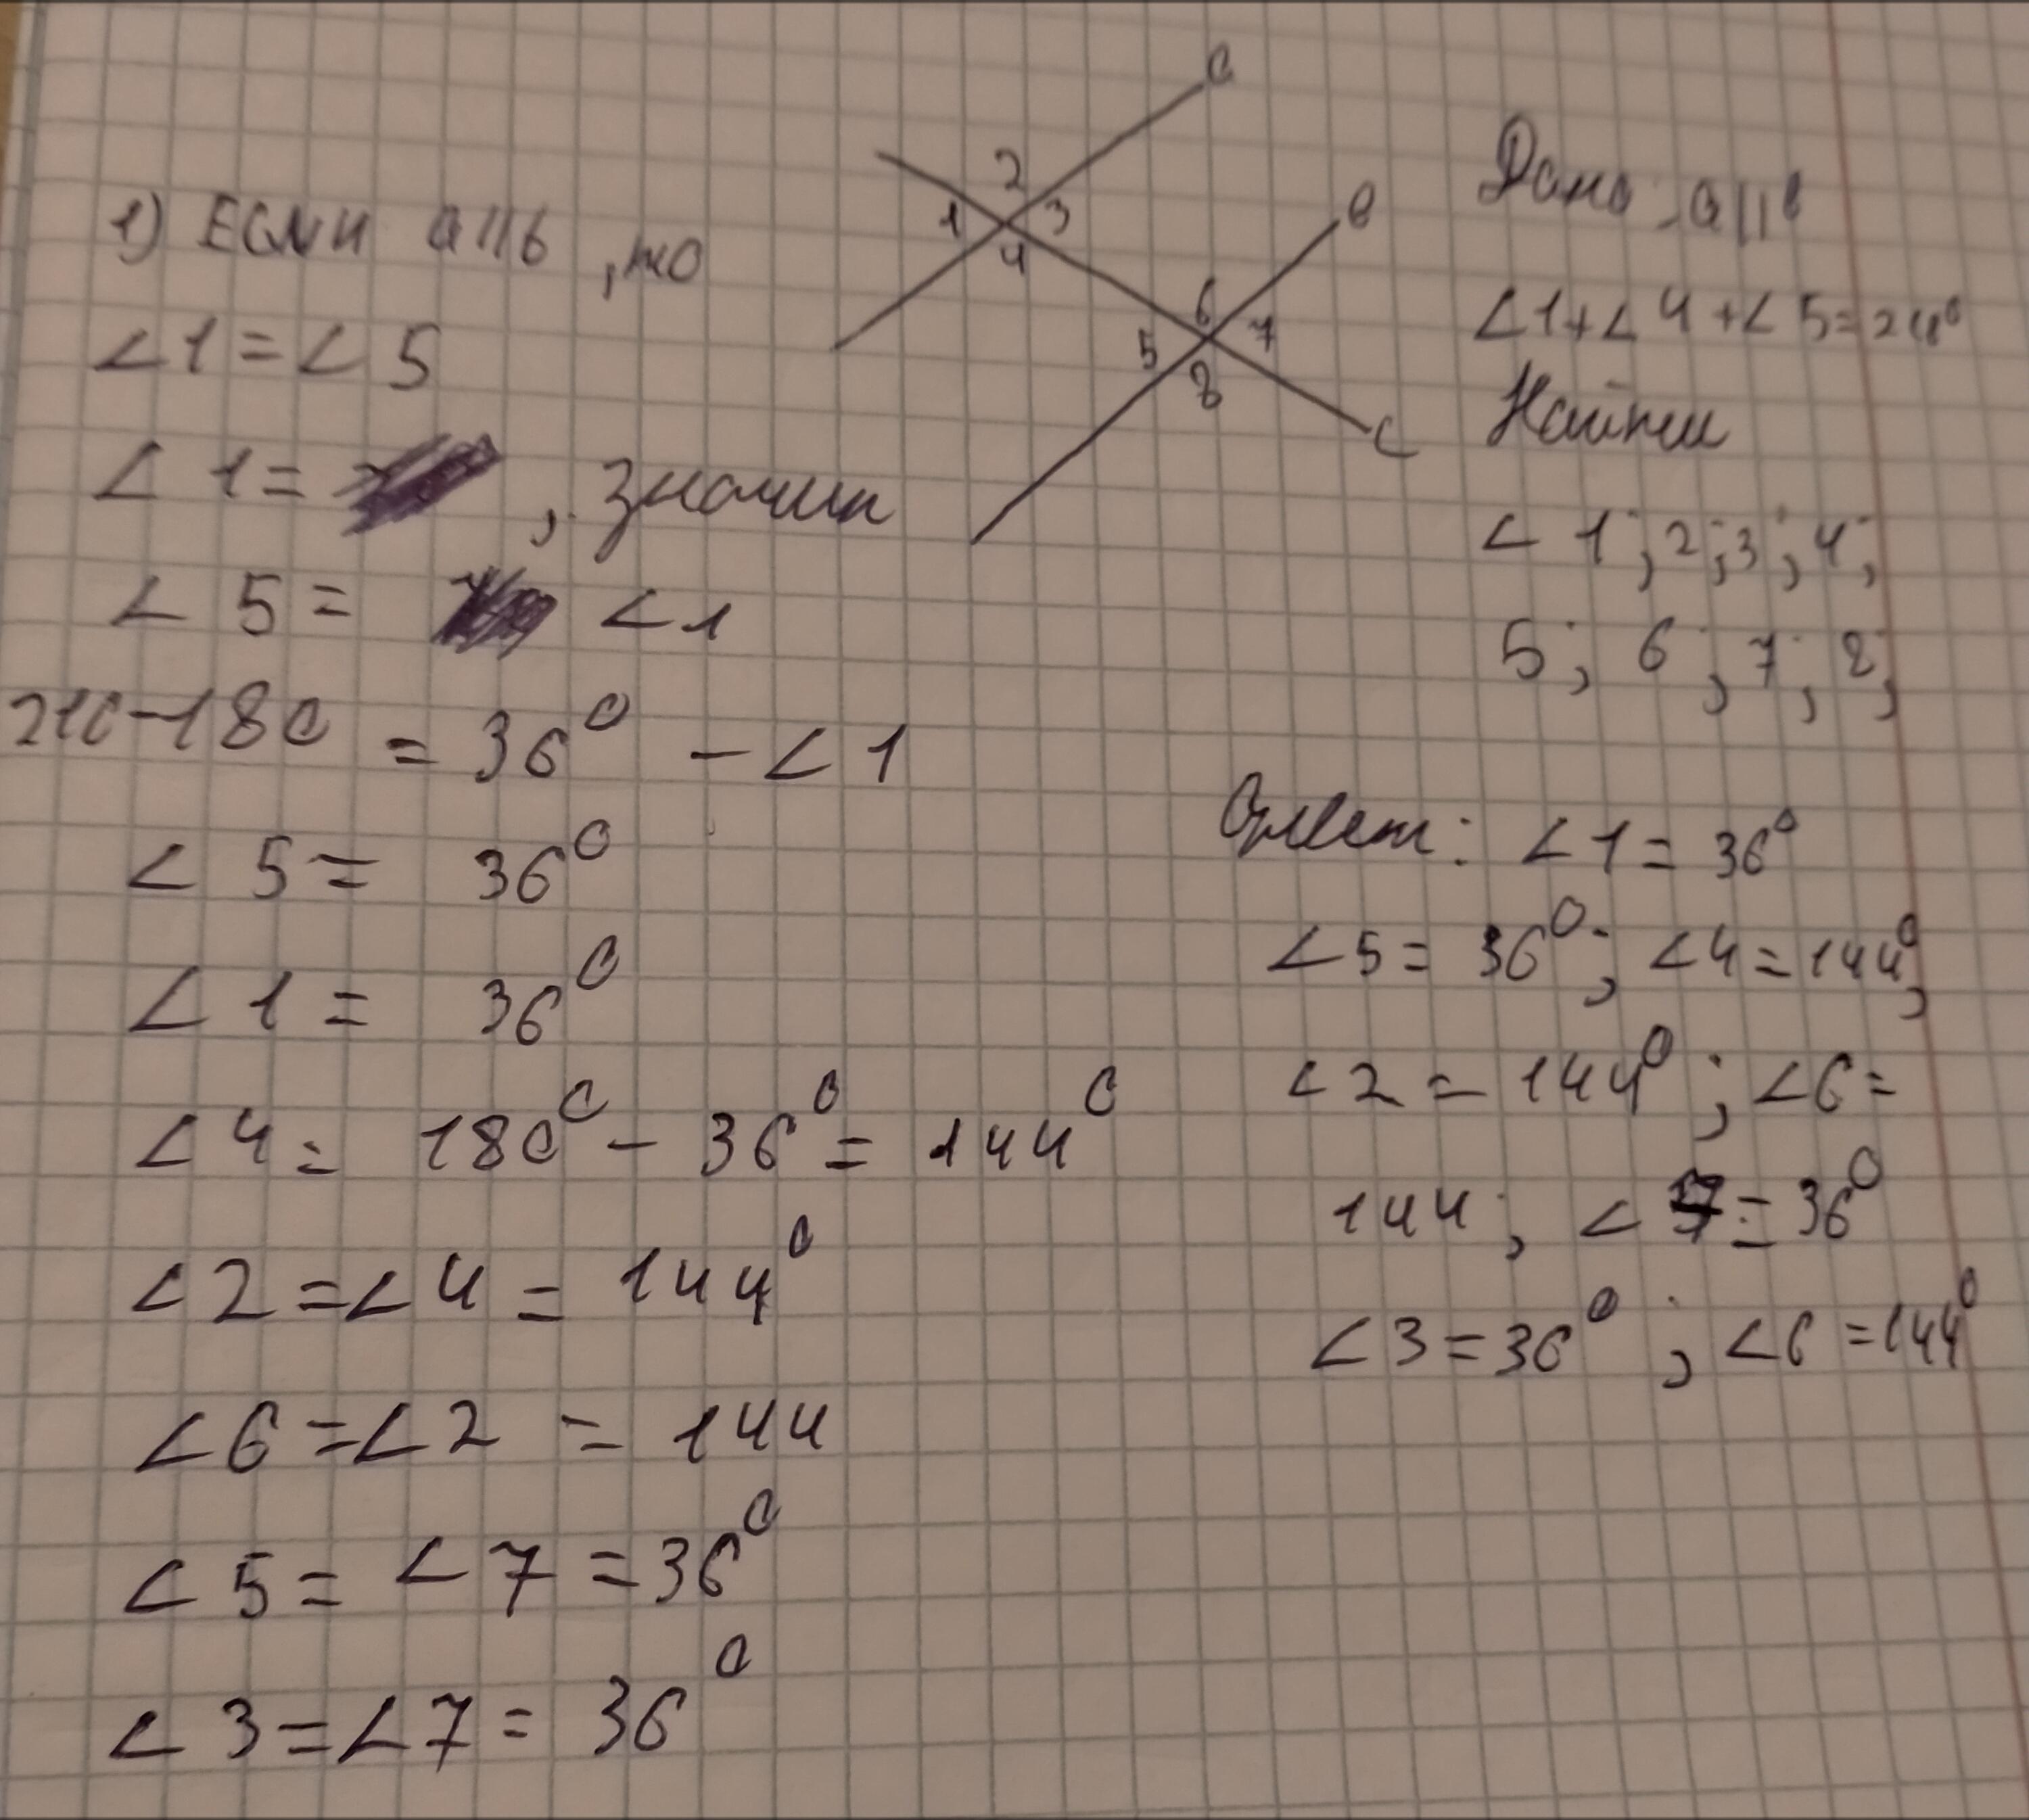 1) Если a||b, то
∠1=∠5
∠1= , значит
∠5= ∠1
-180 = 36° -∠1
∠5= 36°
∠1= 36°
∠4= 180°- 36°= 144°
∠2=∠4= 144°
∠6=∠2 = 144
∠5= ∠7=36°
∠3=∠7= 36°
a
2
1 3
4
в
6
5 7
8
c
Дано: a||в
∠1+∠4+∠5=
Найти
∠1; 2; 3; 4;
5; 6; 7; 8;
Ответ: ∠1= 36°
∠5= 36°; ∠4=144°;
∠2=144°; ∠6=
144; ∠7=36°
∠3=36°; ∠6=144°